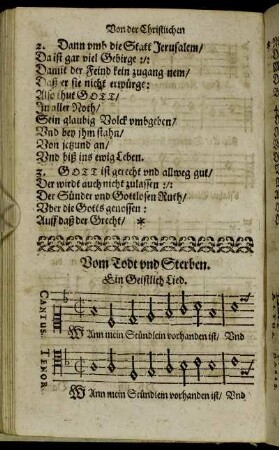 Von der Christlichen
2. Dann vmb die Statt Jerusalem/
Da ist gar viel Gebirge :/:
Damit der Feind kein zugang nem/
Daß er sie nicht erwürge:
Also thut GOTT/
In aller Noth/
Sein glaubig Volck vmbgeben/
Vnd bey jhm stahn/
Von jetzund an/
Vnd biß ins ewig Leben.
3. GOTT ist gerecht vnd allweg gut/
Der wirdt auch nicht zulassen :/:
Der Sünder vnd Gottlosen Ruth/
Vber die Gotts genossen:
Auff daß der Grecht/ *
Vom Todt vnd Sterben.
Ein Geistlich Lied.
CANTUS.
WAnn mein Stündlein vorhanden ist/ Vnd
TENOR.
WAnn mein Stündlein vorhanden ist/ Vnd